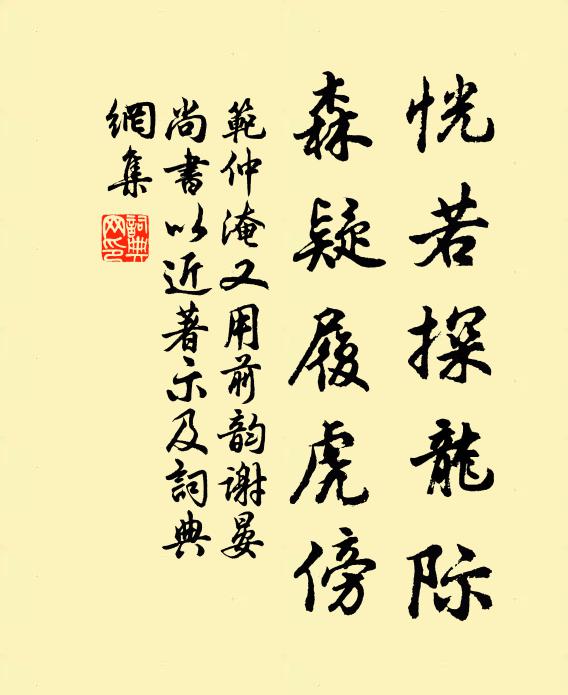 恍若探龍际
森疑履虎傍
範仲淹又用前韵謝晏
尚書以近著示及詞典
網集
詞典网印